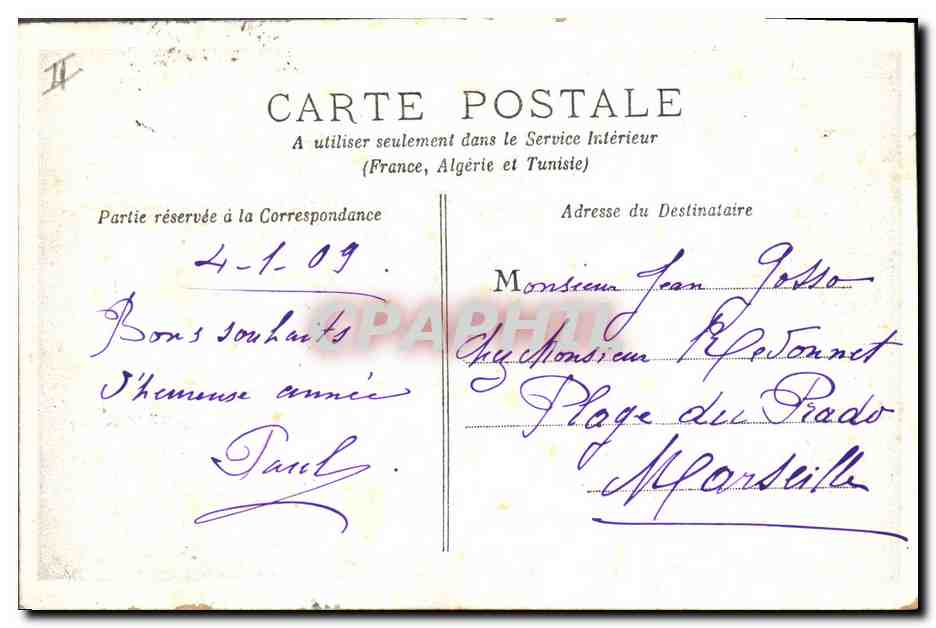 II
CARTE POSTALE
A utiliser seulement dans le Service Intérieur
(France, Algérie et Tunisie)
Partie réservée à la Correspondance
4-1-09.
Bons souhaits
d'heureuse année
Paul.
Adresse du Destinataire
Monsieur Jean Gosso
chez Monsieur Redonnet
Plage du Prado
Marseille
CPAPHIL